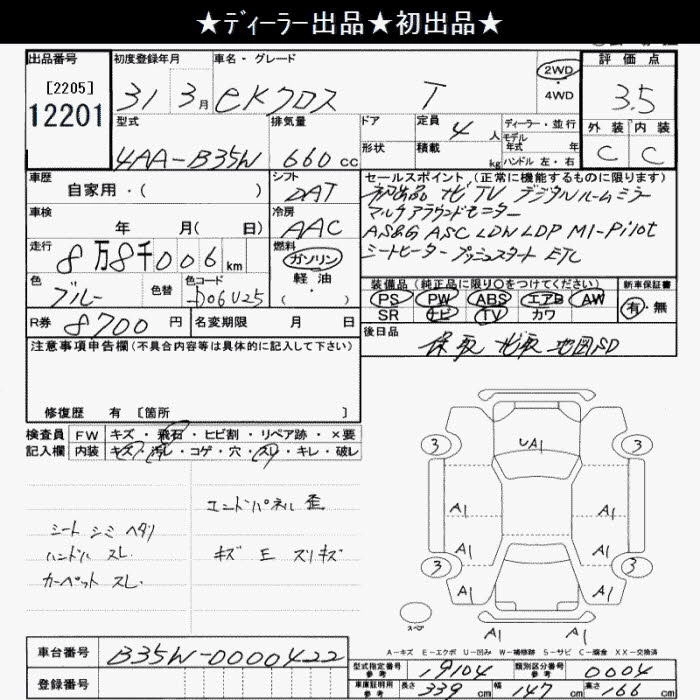 ★ﾃﾞｨｰﾗｰ出品★初出品★
出品番号 初度登録年月 車名・グレード 評価点
[2205]
12201
31 3月 eKクロス T
2WD
・
4WD
3.5
型式 排気量 ドア 定員 4 人 ディーラー・並行
モデル
年式 年
外装 内装
4AA-B35W 660cc 形状 積載 kg ハンドル 左・右
C C
車歴 シフト セールスポイント (正常に機能するものに限ります)
自家用・( ) DAT
初出品 ナビ TV デジタルルームミラー
マルチアラウンドモニター
車検 冷房
年 月( 日) AAC
AS&G ASC LDW LDP MI-Pilot
シートヒーター プッシュスタート ETC
走行 8万8千006km
燃料
ガソリン
軽油
・
( )
色 ブルー 色替 色コード D06U25
装備品 (純正品に限り○をつけてください) 新車保証書
PS PW ABS エアB AW
SR ナビ TV カワ
有・無
R券 8700円 名変期限 月 日
後日品 保取 ナビ取 地図SD
注意事項申告欄(不具合内容等は具体的に記入して下さい)
修復歴 有 [箇所 ]
検査員 FW キズ・飛石・ヒビ割・リペア跡・×要
記入欄 内装 キズ・汚レ・コゲ・穴・スレ・キレ・破レ
エンドパネル 歪
シート シミ ヘタリ
ハンドル スレ
カーペット スレ
キズ E スリキズ
3 UA1 3
A1 A1
A1 A1
3 3
A1 A1
スペア
A1 A1
A-キズ E-エクボ U-凹み W-補修跡 S-サビ C-腐食 XX-交換済
車台番号 B35W-0000422
登録番号
型式指定番号 参考 19104 類別区分番号 参考 0004
車庫証明用 参考 長さ 339cm 幅 147cm 高さ 166cm